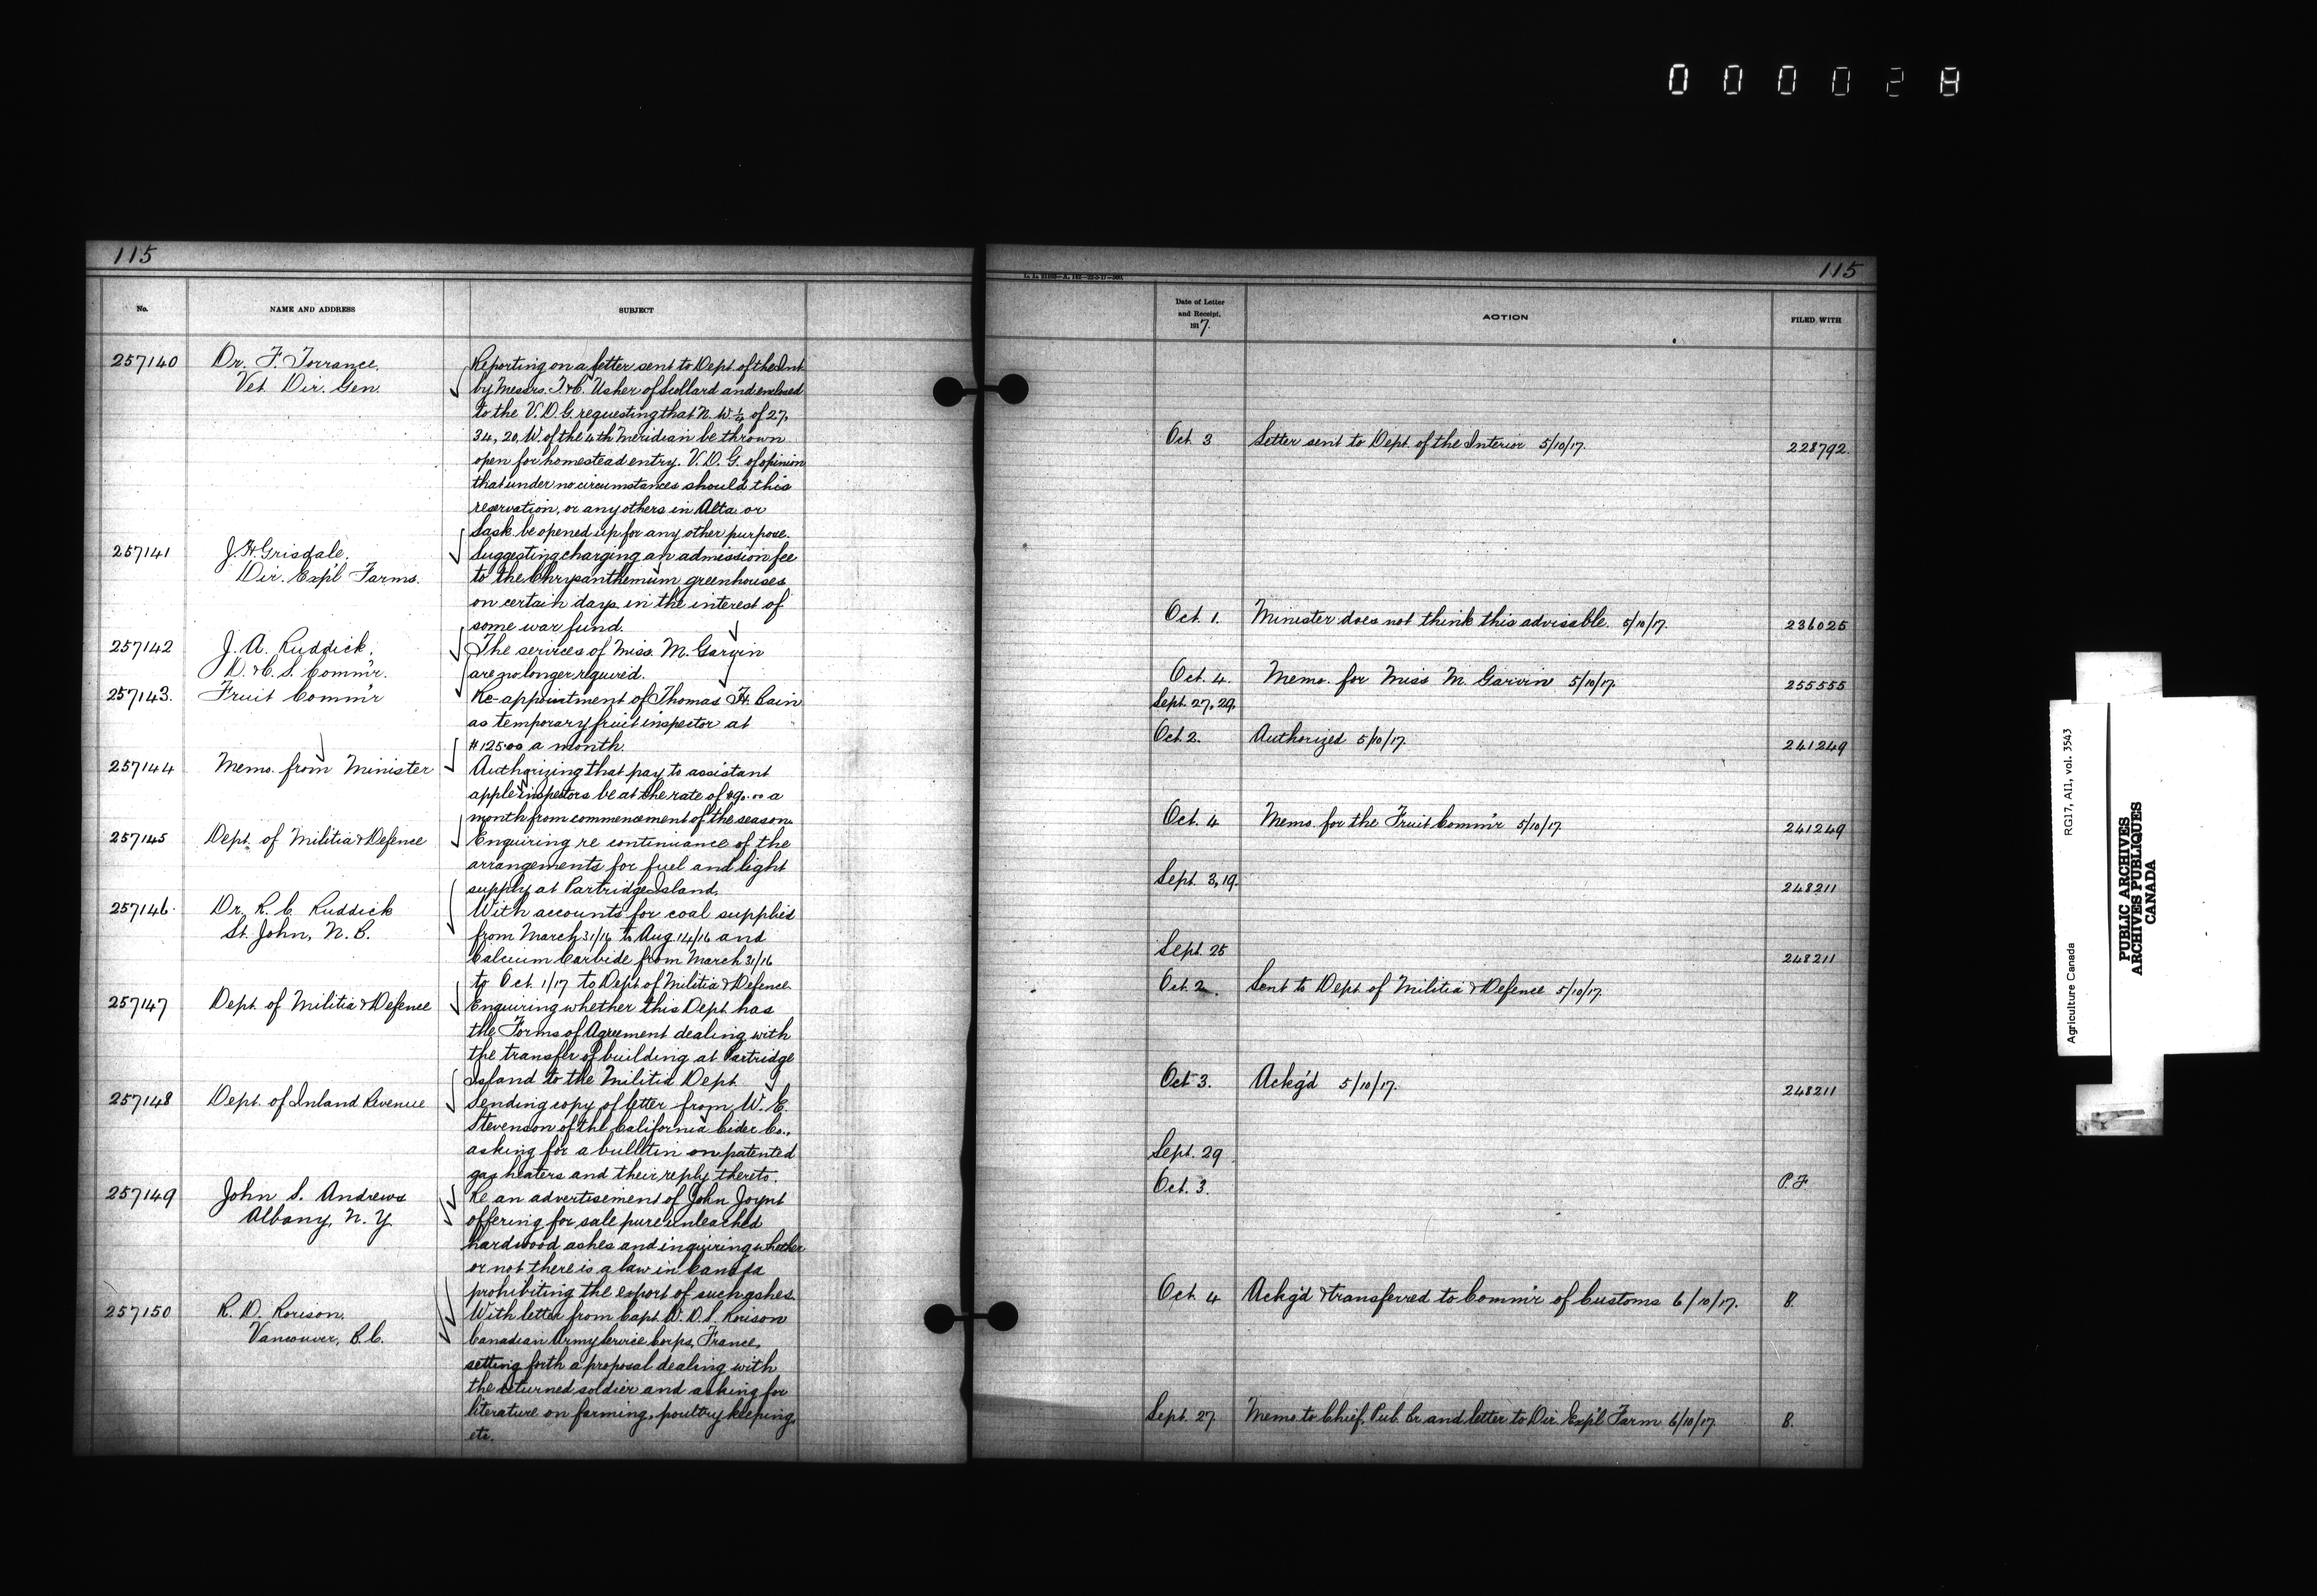 0 0 0 0 2 8
115
No.
NAME AND ADDRESS
SUBJECT
257140
Dr. F. Torrance.
Vet. Dir. Gen.
Reporting on a letter sent to Dept. of the Int.
by Messrs. T & C. Usher of Scollard and enclosed
to the V.D.G. requesting that N.W. ¼ of 27,
34, 20, W. of the 4th Meridian be thrown
open for homestead entry. V.D.G. of opinion
that under no circumstances should this
reservation, or any others in Alta. or
Sask. be opened up for any other purpose.
257141
J. H. Grisdale.
Dir. Exp'l Farms.
Suggesting charging an admission fee
to the Chrysanthemum greenhouses
on certain days in the interest of
some war fund.
257142
J. A. Ruddick.
D. & C. S. Comm'r.
The services of Miss. M. Garvin
are no longer required.
257143.
Fruit Comm'r
Re-appointment of Thomas H. Bain
as temporary fruit inspector at
$125.00 a month.
257144
Memo. from Minister
Authorizing that pay to assistant
apple inspectors be at the rate of $90.00 a
month from commencement of the season.
257145
Dept. of Militia & Defence
Enquiring re continuance of the
arrangements for fuel and light
supply at Partridge Island.
257146.
Dr. R. C. Ruddick
St. John, N. B.
With accounts for coal supplied
from March 31/16 to Aug. 14/16 and
Calcium Carbide from March 31/16
to Oct. 1/17 to Dept. of Militia & Defence.
257147
Dept. of Militia & Defence
Enquiring whether this Dept. has
the Forms of Agreement dealing with
the transfer of building at Partridge
Island to the Militia Dept.
257148
Dept. of Inland Revenue
Sending copy of letter from W. E.
Stevenson of the California Cider Co.,
asking for a bulletin on patented
gas heaters and their reply thereto.
257149
John S. Andrews
Albany, N. Y.
Re an advertisement of John Joynt
offering for sale pure unleached
hardwood ashes and inquiring whether
or not there is a law in Canada
prohibiting the export of such ashes.
257150
R. D. Rorison.
Vancouver, B.C.
With letter from Capt. W. D. S. Rorison
Canadian Army Service Corps, France,
setting forth a proposal dealing with
the returned soldier and asking for
literature on farming, poultry keeping,
etc.
115
Date of Letter
and Receipt,
1917.
ACTION
FILED WITH
Oct. 3
Letter sent to Dept. of the Interior 5/10/17.
228792.
Oct. 1.
Minister does not think this advisable. 5/10/17.
236025
Oct. 4.
Memo. for Miss M. Garvin 5/10/17.
255555
Sept. 27, 29.
Oct. 2.
Authorized 5/10/17.
241249
Oct. 4
Memo. for the Fruit Comm'r 5/10/17
241249
Sept. 3, 19.
248211
Sept. 25
248211
Oct. 2.
Sent to Dept. of Militia & Defence 5/10/17.
Oct. 3.
Ackg'd 5/10/17.
248211
Sept. 29
Oct. 3.
P. F.
Oct. 4
Ackg'd & transferred to Comm'r of Customs 6/10/17.
B.
Sept. 27
Memo. to Chief, Pub. Br. and letter to Dir. Exp'l Farm 6/10/17
B.
Agriculture Canada
RG17, AI1, vol. 3543
PUBLIC ARCHIVES
ARCHIVES PUBLIQUES
CANADA